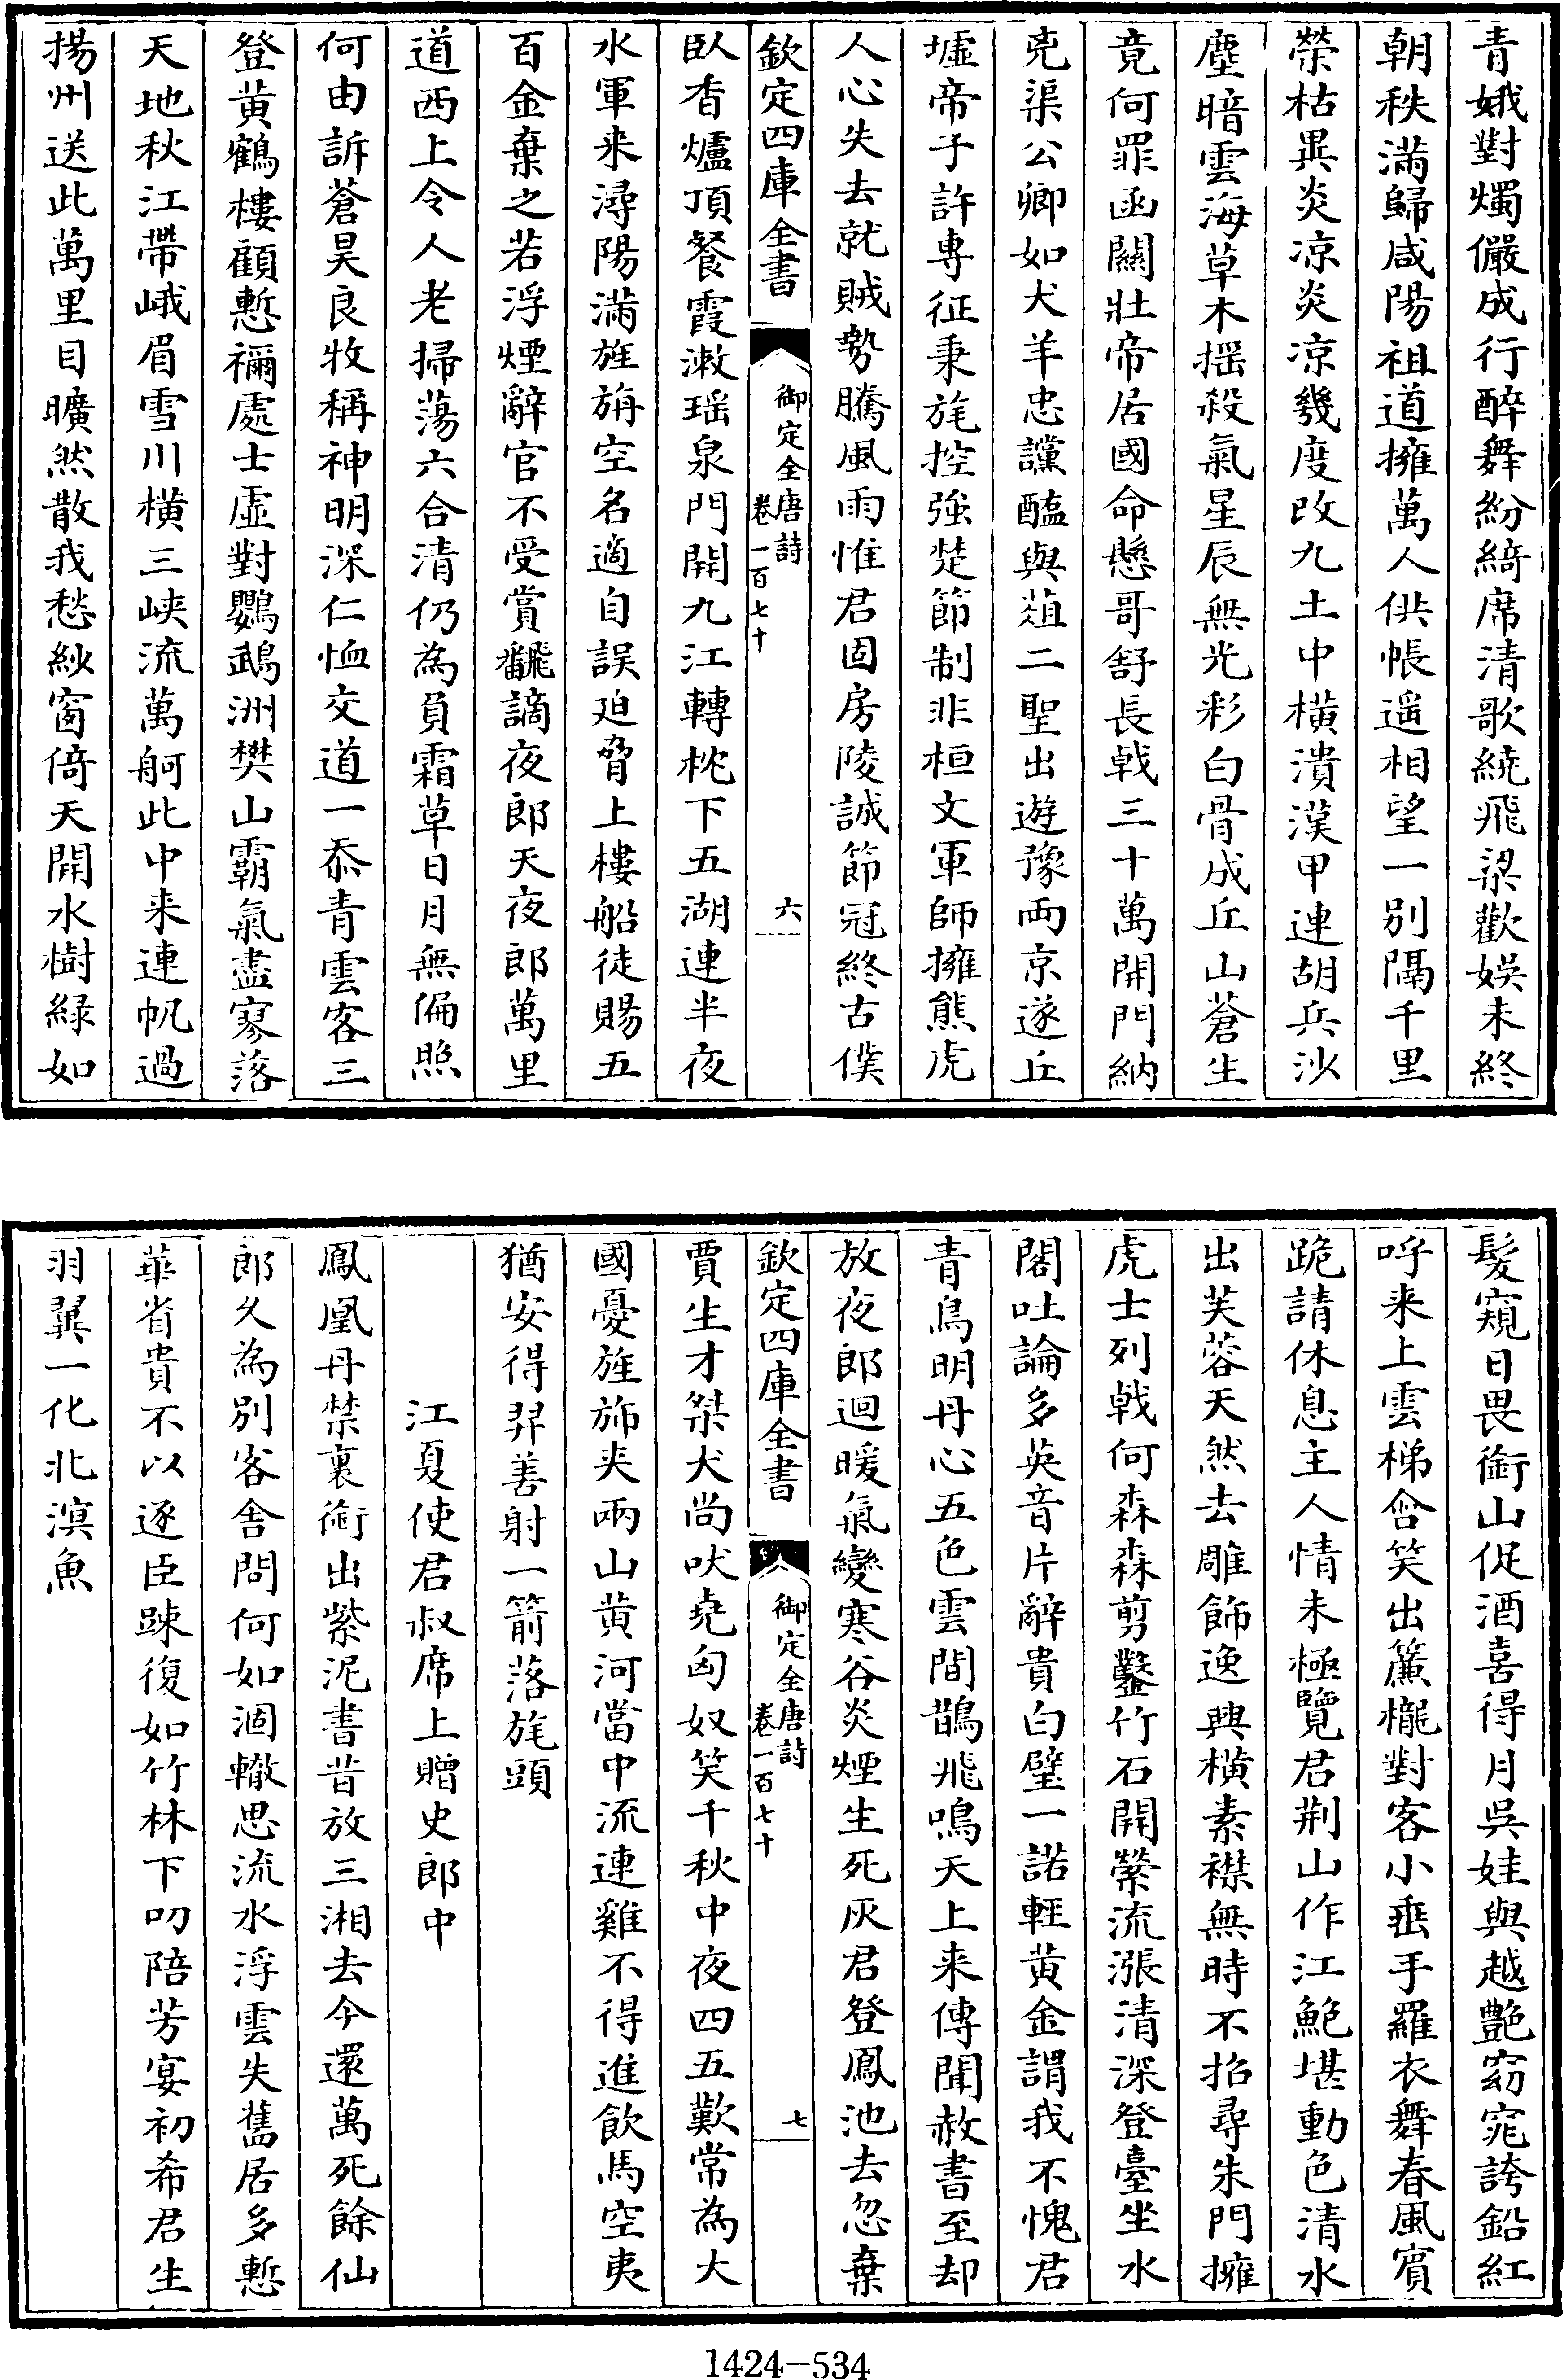 青娥對燭儼成行醉舞紛綺席清歌繞飛梁歡娛未終
朝秩滿歸咸陽祖道擁萬人供帳遥相望一别隔千里
榮枯異炎凉炎凉幾度改九土中橫潰漢甲連胡兵沙
塵暗雲海草木揺殺氣星辰無光彩白骨成丘山蒼生
竟何罪函關壯帝居國命懸哥舒長戟三十萬開門納
兇渠公卿如犬羊忠讜醢與葅二聖出遊豫両京遂丘
墟帝子許專征秉旄控強楚節制非桓文軍師擁熊虎
人心失去就賊勢騰風雨惟君固房陵誠節冠終古僕
欽定四庫全書
御定全唐詩
卷一百七十
六
臥香爐頂餐霞漱瑶泉門開九江轉枕下五湖連半夜
水軍来潯陽滿旌旃空名適自誤廹脅上樓船徒賜五
百金棄之若浮煙辭官不受賞翻謫夜郎天夜郎萬里
道西上令人老掃蕩六合清仍為負霜草日月無偏照
何由訴蒼昊良牧稱神明深仁恤交道一忝青雲客三
登黄鶴樓顧慙禰處士虚對鸚鵡洲樊山霸氣盡寥落
天地秋江帶峨眉雪川橫三峽流萬舸此中来連帆過
揚州送此萬里目曠然散我愁紗窗倚天開水樹緑如
髮窺日畏銜山促酒喜得月吳娃與越艶窈窕誇鉛紅
呼来上雲梯含笑出簾櫳對客小垂手羅衣舞春風賓
跪請休息主人情未極覽君荆山作江鮑堪動色清水
出芙蓉天然去雕飾逸興橫素襟無時不招尋朱門擁
虎士列戟何森森剪鑿竹石開縈流漲清深登臺坐水
閣吐論多英音片辭貴白璧一諾輕黄金謂我不愧君
青鳥明丹心五色雲間鵲飛鳴天上来傳聞赦書至却
放夜郎迴暖氣變寒谷炎煙生死灰君登鳳池去忽棄
欽定四庫全書
御定全唐詩
卷一百七十
七
賈生才桀犬尚吠堯匈奴笑千秋中夜四五歎常為大
國憂旌斾夾兩山黄河當中流連雞不得進飲馬空夷
猶安得羿善射一箭落旄頭
江夏使君叔席上贈史郎中
鳳凰丹禁裏銜出紫泥書昔放三湘去今還萬死餘仙
郎久為别客舍問何如涸轍思流水浮雲失舊居多慙
華省貴不以逐臣踈復如竹林下叨陪芳宴初希君生
羽翼一化北溟魚
1424—534